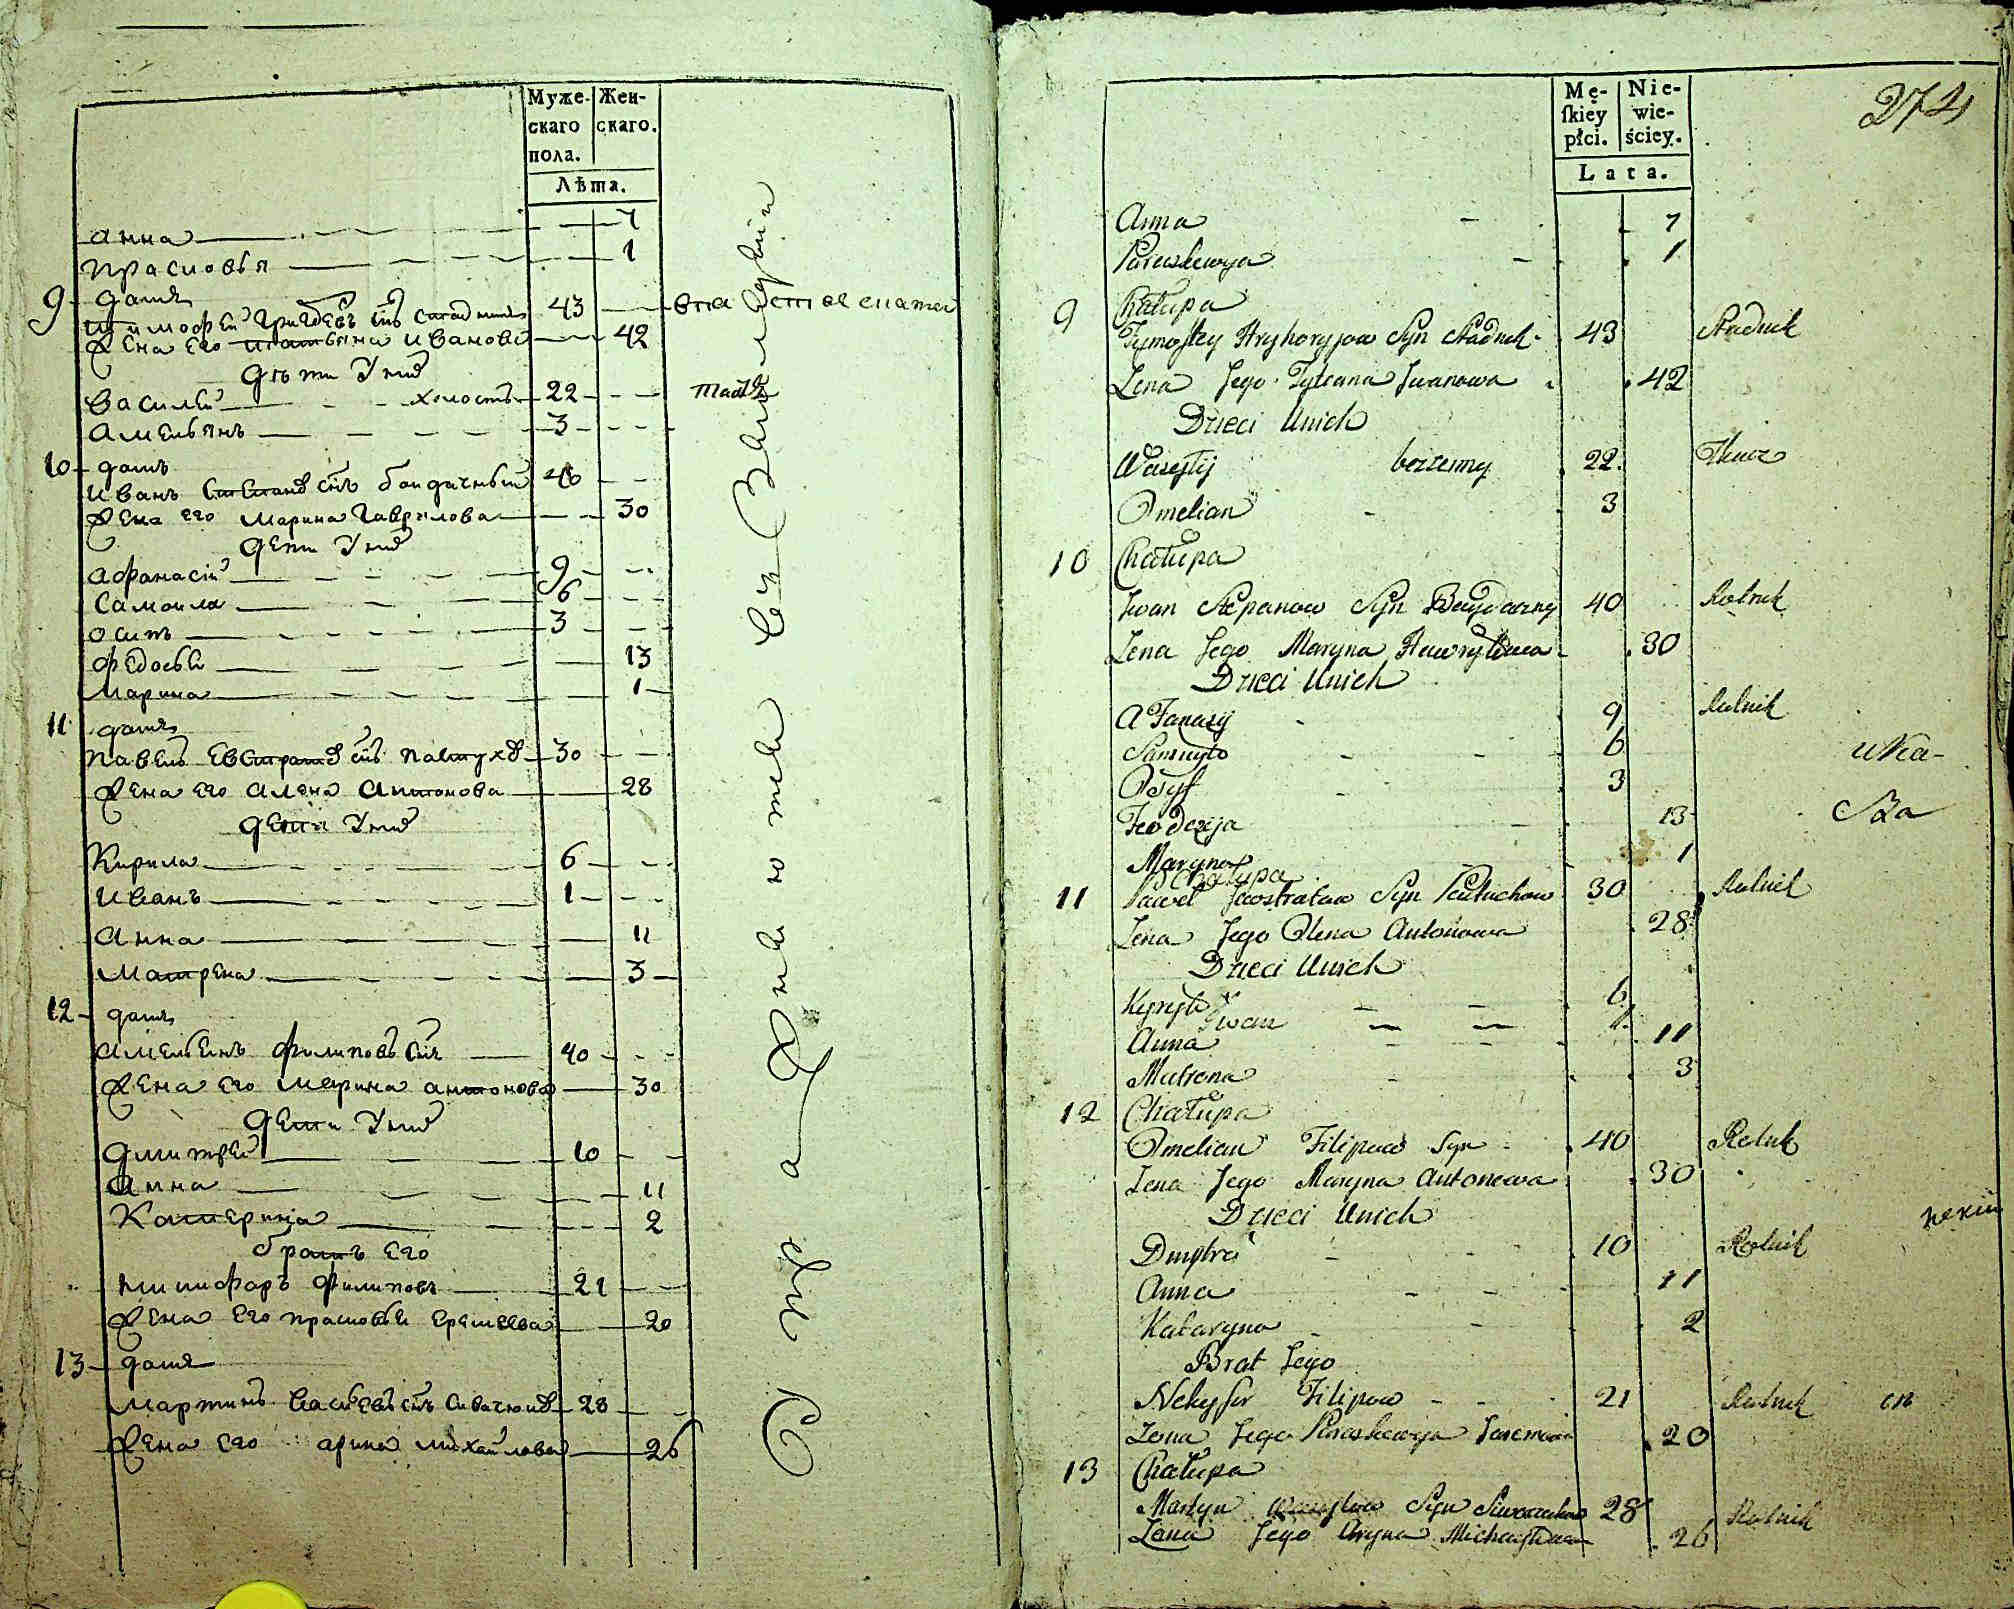 Муже- Жен-
скаго скаго.
пола.
Лѣта.
анна 7
прасковья 1
9 домъ
Тимофей Григорьевъ снъ Стадникъ 43
Жена его татьяна иванова 42
дѣти Унихъ
василей холостъ 22
амельянъ 3
10 домъ
иванъ Степановъ снъ бондарный 40
Жена его марина Гаврилова 30
дети Унихъ
афанасій 9
самоила 6
осипъ 3
федосья 13
марина 1
11 домъ
павелъ Евстратовъ снъ пастуховъ 30
Жена его алена антонова 28
дети Унихъ
Кирила 6
иванъ 1
анна 11
матрена 3
12 домъ
амельянъ филиповъ снъ 40
Жена его марина антонова 30
дети Унихъ
дмитрей 10
анна 11
Катерина 2
братъ его
никифоръ филиповъ 21
Жена его прасковья еремеева 20
13 домъ
мартинъ васильевъ снъ 28
Жена его арина михайлова 26
274
Mę- Nie-
skiey wie-
płci. ściey.
Lata.
Anna 7
Paraskewya 1
9 Chałupa
Tymofiey Hryhoryjow Syn Stadnik 43 Stadnik
Żena Jego Tyteana Jwanowa 42
Dzieci Unich
Wasylij bezżenny 22 Tkacz
Omelian 3
10 Chałupa
Jwan Stepanow Syn Baydarzny 40 Rolnik
Żena Jego Maryna Hawryłowa 30
Dzieci Unich
Afanasij 9 Rolnik
Samuyło 6
Osyf 3
Feodozija 13
Maryna 1
Chałupa
11 Paweł Jewstratow Syn Pastuchow 30 Rolnik
Żena Jego Olena Antonowa 28
Dzieci Unich
Kyryło 6
Jwan 1
Anna 11
Matrona 3
12 Chałupa
Omelian Filipow Syn 40 Rolnik
Żena Jego Maryna Antonowa 30
Dzieci Unich
Dmytro 10 Rolnik
Anna 11
Kataryna 2
Brat Jego
Nekyfir Filipow 21 Rolnik
Żena Jego Paraskewya 20
13 Chałupa
Martyn Wasylow Syn 28 Rolnik
Żena Jego Aryna Michayłowa 26